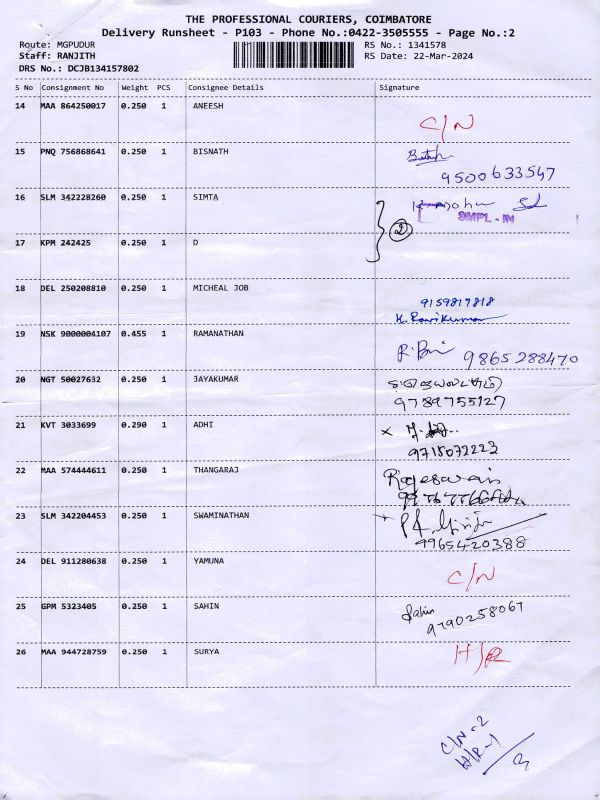 THE PROFESSIONAL COURIERS, COIMBATORE
Delivery Runsheet - P103 - Phone No.:0422-3505555 - Page No.:2
Route: MGPUDUR RS No.: 1341578
Staff: RANJITH RS Date: 22-Mar-2024
DRS No.: DCJB134157802
S No Consignment No Weight PCS Consignee Details Signature
14 MAA 864250017 0.250 1 ANEESH
C/N
15 PNQ 756868641 0.250 1 BISNATH
9500633547
16 SLM 342228260 0.250 1 SIMTA
SMPL - IN
2
17 KPM 242425 0.250 1 D
18 DEL 250208810 0.250 1 MICHEAL JOB
9159817818
K. Ravikumar
19 NSK 9000004107 0.455 1 RAMANATHAN
9865288470
20 NGT 50027632 0.250 1 JAYAKUMAR
9789755127
21 KVT 3033699 0.290 1 ADHI
x
9715072223
22 MAA 574444611 0.250 1 THANGARAJ
23 SLM 342204453 0.250 1 SWAMINATHAN
9965420388
24 DEL 911280638 0.250 1 YAMUNA
C/N
25 GPM 5323405 0.250 1 SAHIN
Sahin
9790258067
26 MAA 944728759 0.250 1 SURYA
H/R
C/N-2
H/R-1
3